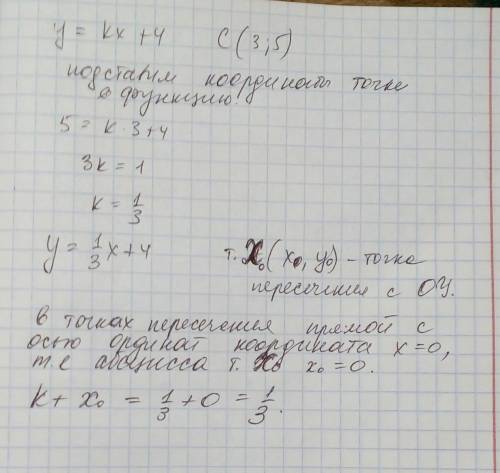 y = kx + 4 C (3; 5)
подставим координаты точки
в функцию:
5 = k · 3 + 4
3k = 1
k = 1/3
y = 1/3 x + 4 т. X₀ (x₀, y₀) – точка
пересечения с OY.
в точках пересечения прямой с
осью ординат координата x = 0,
т.е абсцисса т. X₀ x₀ = 0.
k + x₀ = 1/3 + 0 = 1/3.